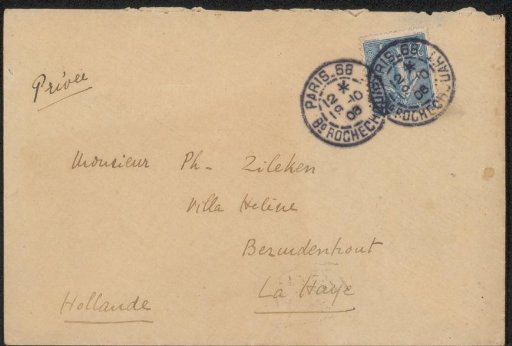 Privée
PARIS_68
*
12
10
06
Bd ROCHECHOUART
PARIS_68
*
12
10
06
Bd ROCHECHOUART
Monsieur Ph- Zilcken
Villa Hélène
Bezuidenhout
La Haye
Hollande